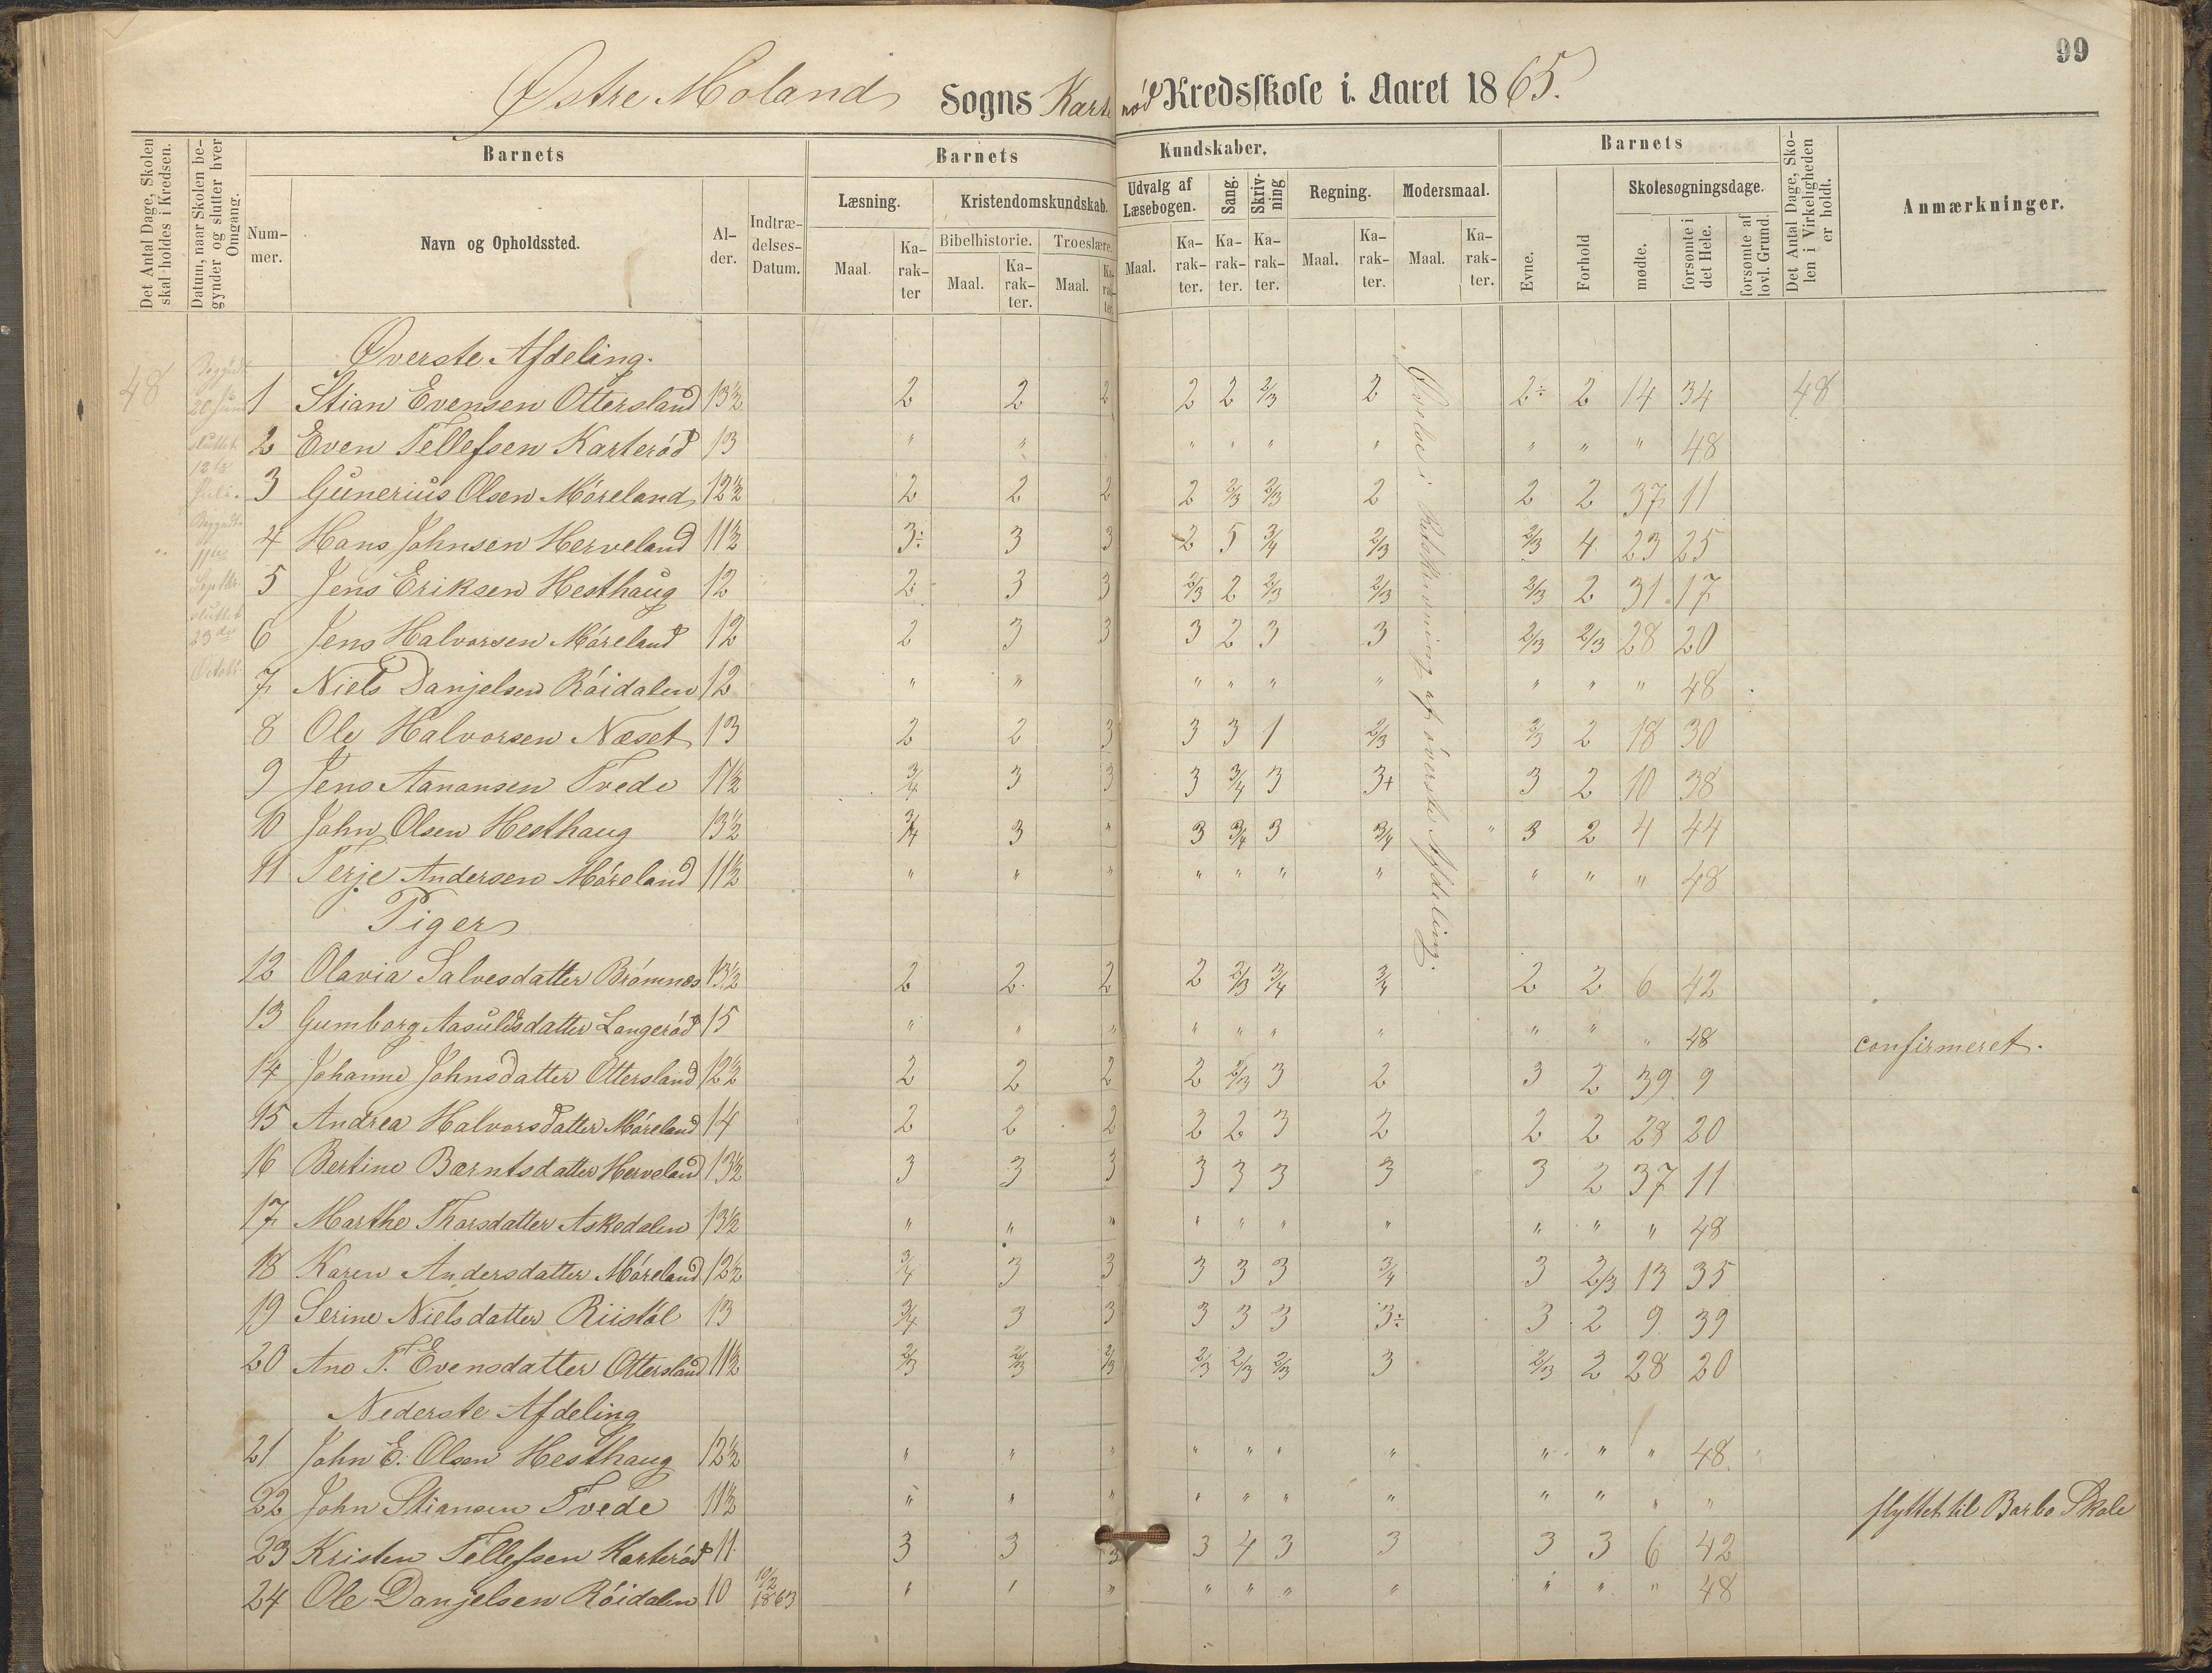 99
Østre Moland Sogns Karterød Kredsskole i Aaret 1865.
Det Antal Dage, Skolen skal holdes i Kredsen.
Datum, naar Skolen begynder og slutter hver Omgang.
Barnets
Num-mer.
Navn og Opholdssted.
Al-der.
Indtræ-delses-Datum.
Barnets Kundskaber.
Læsning.
Maal. Ka-rak-ter
Kristendomskundskab.
Bibelhistorie. Troeslære.
Maal. Ka-rak-ter. Maal. Ka-rak-ter.
Udvalg af Læsebogen.
Maal. Ka-rak-ter.
Sang. Ka-rak-ter.
Skriv-ning Ka-rak-ter.
Regning. Maal. Ka-rak-ter.
Modersmaal. Maal. Ka-rak-ter.
Barnets
Evne. Forhold
Skolesøgningsdage.
mødte. forsømte i det Hele. forsømte af lovl. Grund.
Det Antal Dage, Skolen i Virkeligheden er holdt.
Anmærkninger.
48
Begyndt
20 Juni
sluttet
12te
Juli.
Begyndte
11te
Septbr.
sluttet
23de
Octobr.
Øverste Afdeling.
1 Stian Evensen Ottersland 13½ 2 2 2 2 2 2/3 2 2÷ 2 14 34 48
2 Even Tellefsen Karterød 13 " " " " " " " " " 48
3 Gunerius Olsen Møreland 12½ 2 2 2 2 2/3 2/3 2 2 2 37 11
4 Hans Johnsen Herveland 11½ 3÷ 3 3 2 5 3/4 2/3 2/3 4 23 25
5 Jens Eriksen Hesthaug 12 2 3 3 2/3 2 2/3 2/3 2/3 2 31 17
6 Jens Halvorsen Møreland 12 2 3 3 3 2 3 3 2/3 2/3 28 20
7 Niels Danjelsen Røidalen 12 " " " " " " " " " 48
8 Ole Halvorsen Næset 13 2 2 3 3 3 1 2/3 2/3 2 18 30
9 Jens Aanonsen Tvede 11½ 3/4 3 3 3 3/4 3 3+ 3 2 10 38
10 John Olsen Hesthaug 13½ 3/4 3 " 3 3/4 3 3/4 " 3 2 4 44
11 Terje Andersen Møreland 11½ " " " " " " " " " " 48
Piger
12 Olavia Salvesdatter Brømnes 13½ 2 2 2 2 2/3 3/4 3/4 2 2 6 42
13 Gumborg Aasulvsdatter Langerød 15 " " " " " " " " " " 48 confirmeret.
14 Johanne Johnsdatter Ottersland 12½ 2 2 2 2 2/3 3 2 3 2 39 9
15 Andrea Halvorsdatter Møreland 14 2 2 2 2 2 3 2 2 2 28 20
16 Bertine Bærntsdatter Herveland 13½ 3 3 3 3 3 3 3 3 2 37 11
17 Marthe Thorsdatter Askedalen 13½ " " " " " " " " " " 48
18 Karen Andersdatter Møreland 12½ 3/4 3 3 3 3 3 3/4 3 2/3 13 35
19 Serine Nielsdatter Riistøl 13 3/4 3 3 3 3 3 3÷ 3 2 9 39
20 Ane T. Evensdatter Ottersland 11½ 2/3 2/3 2/3 2/3 2/3 2/3 3 2/3 2 28 20
Nederste Afdeling
21 John E. Olsen Hesthaug 12½ " " " " " " " " " " 48
22 John Stiansen Tvede 11½ " " " " " " " " " " " flyttet til Barbo Skole
23 Kristen Tellefsen Karterød 11 3 3 3 3 4 3 3 3 3 6 42
24 Ole Danjelsen Røidalen 10 10/2 1863 " " " " " " " " " " 48
af øverste Afdeling.